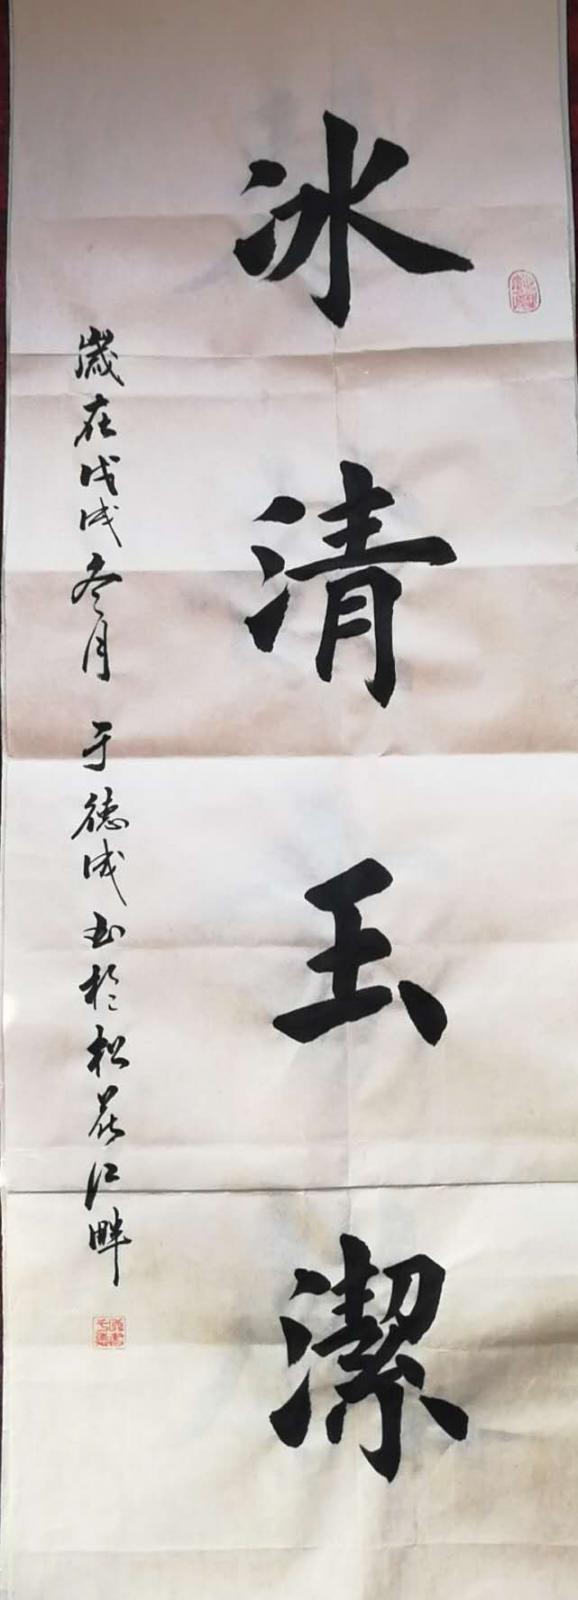 冰清玉潔
歲在戊戌冬月 于德成書於松花江畔